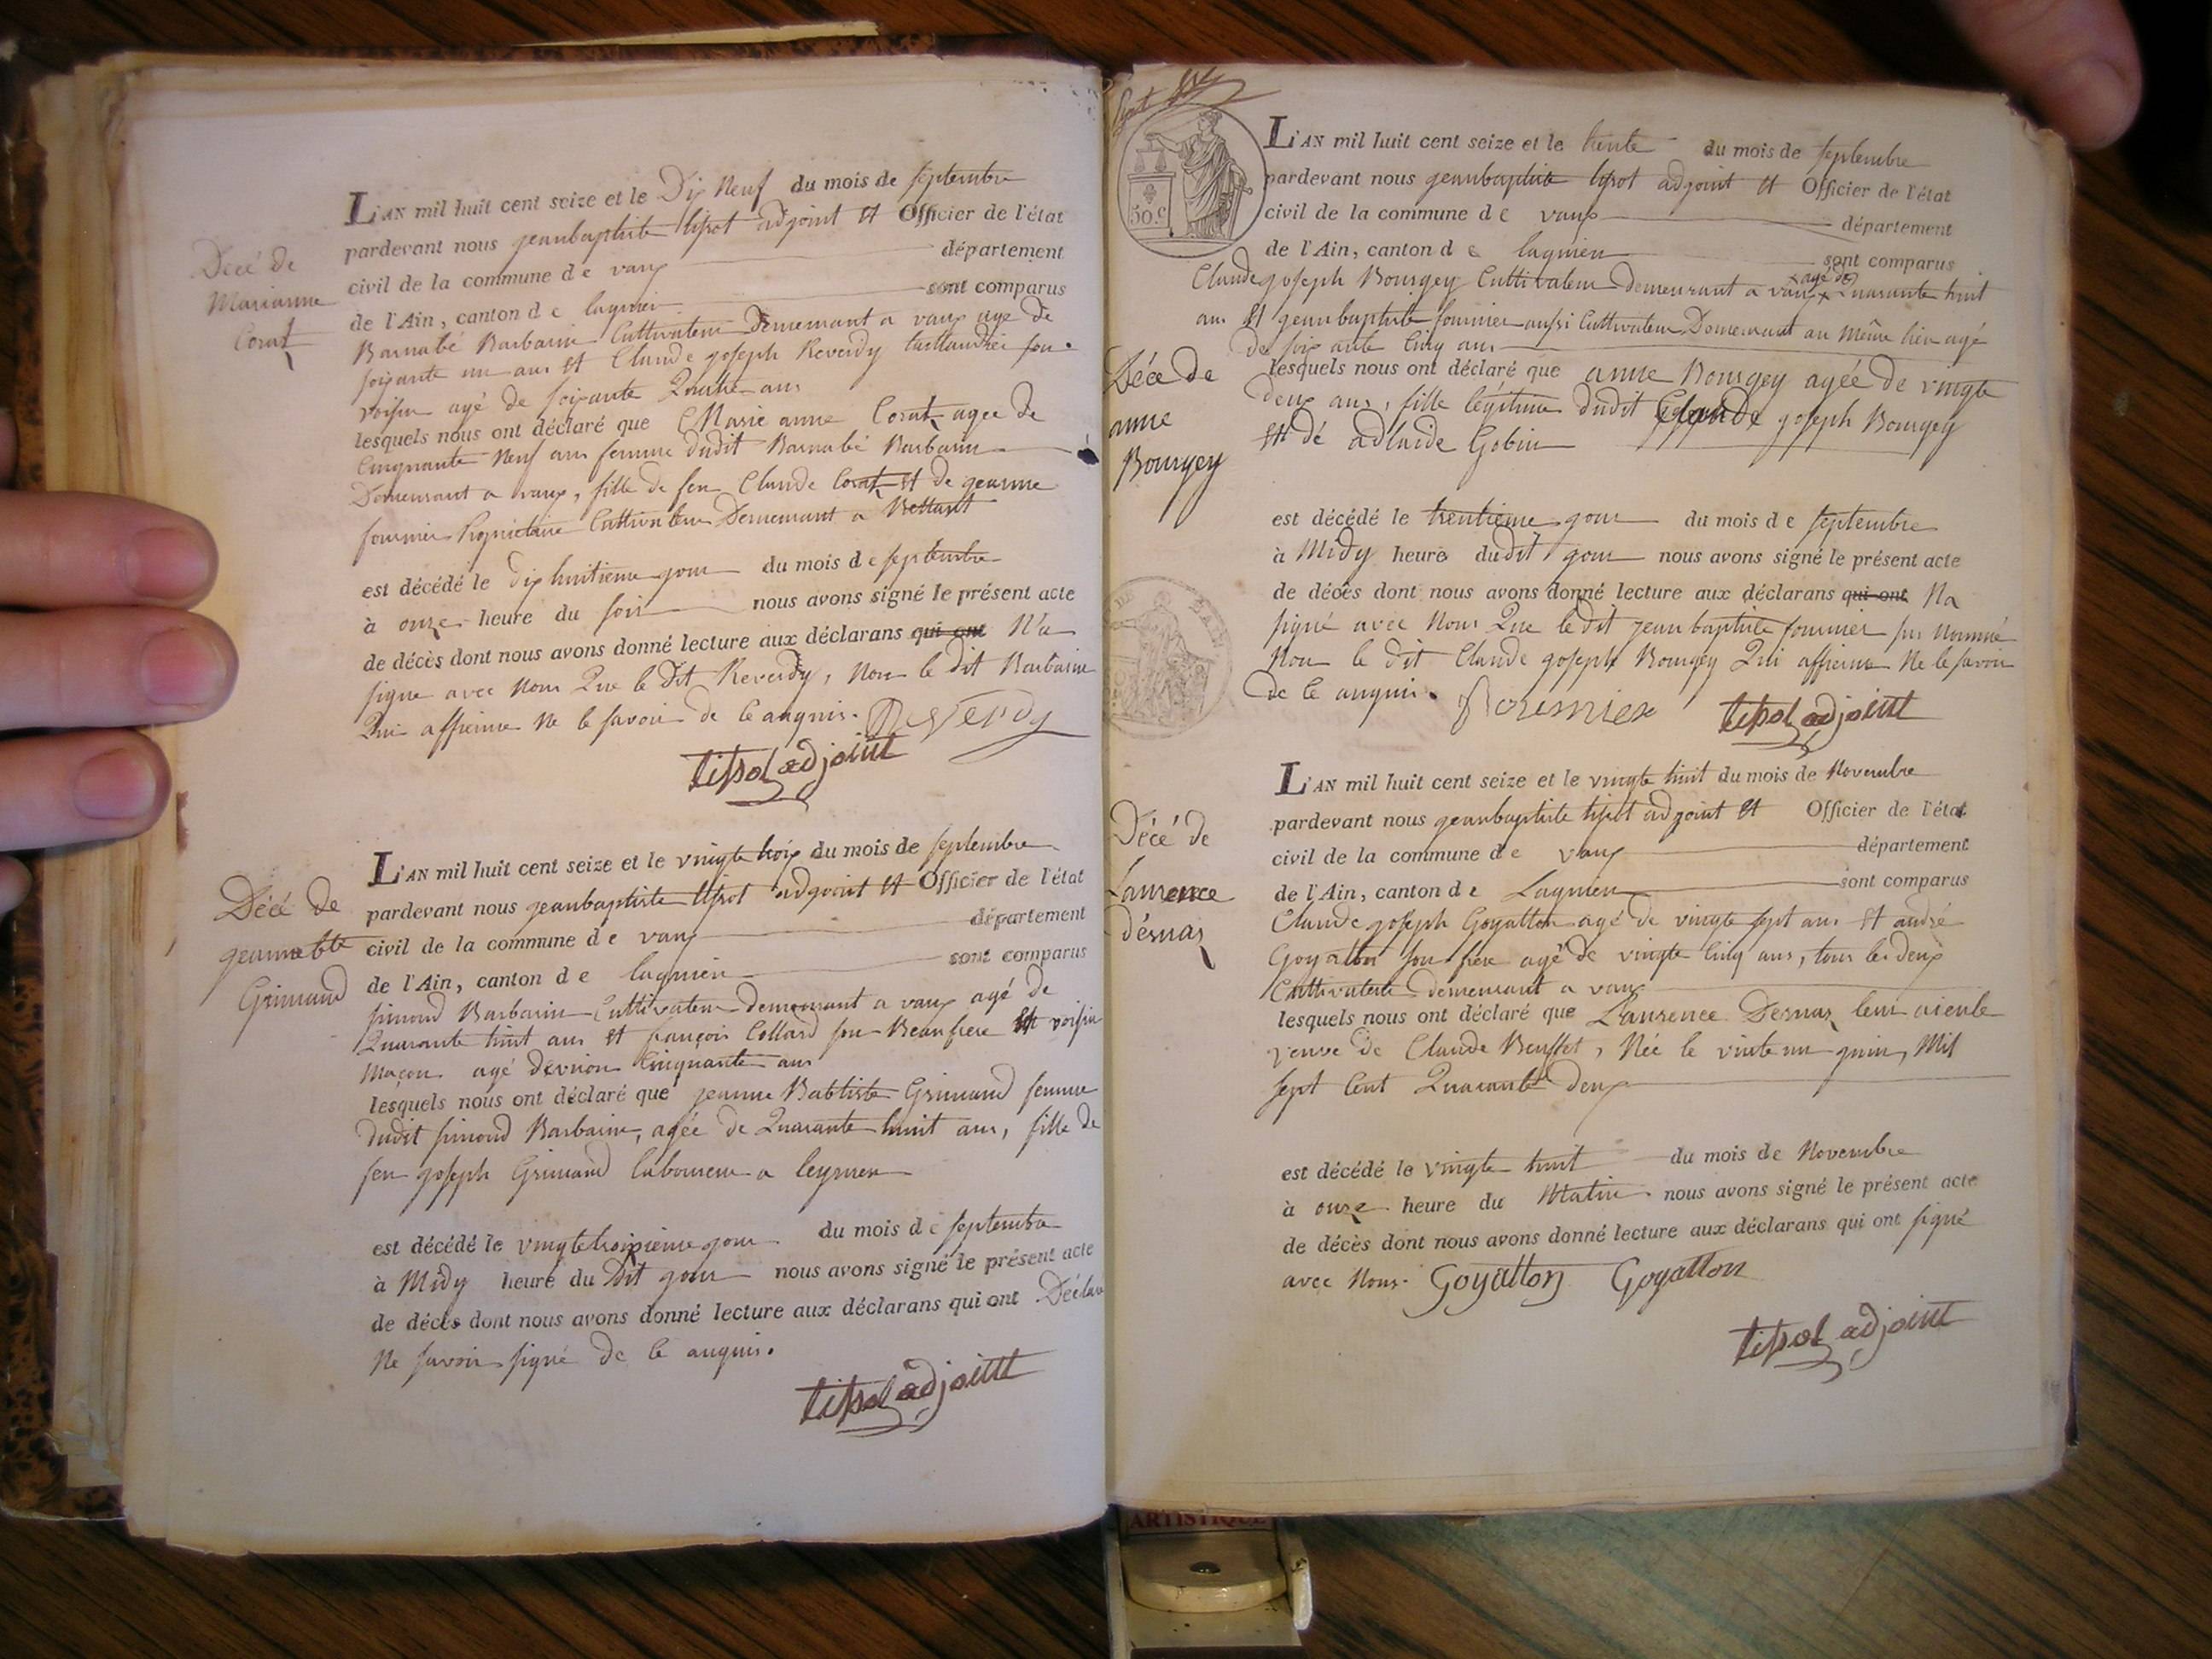 Décé de
Marianne
Corat
L'AN mil huit cent seize et le Dix Neuf du mois de septembre
pardevant nous jeanbaptiste tissot adjoint et Officier de l'état
civil de la commune de vaux département
de l'Ain, canton de lagnieu sont comparus
Barnabé Barbarin Cultivateur Demeurant a vaux agé de
soixante un ans et Claude joseph Reverdy taillandier son
voisin agé de soixante Quatre ans
lesquels nous ont déclaré que Marie anne Corat agee de
Cinquante Neuf ans femme dudit Barnabé Barbarin
Demeurant a vaux, fille de feu Claude Corat et de jeanne
fournier Propriétaire Cultivateur Demeurant a Bettant
est décédé le dix huitieme jour du mois de septembre
à onze heure du soir nous avons signé le présent acte
de décès dont nous avons donné lecture aux déclarans qui ont N'a
signe avec Nous Que le dit Reverdy, Non le dit Barbarin
Qui affirme Ne le savoir de ce anquis. Reverdy
tissot adjoint
Décé de
jeannebte
Grimaud
L'AN mil huit cent seize et le vingte trois du mois de septembre
pardevant nous jeanbaptiste tissot adjoint et Officier de l'état
civil de la commune de vaux département
de l'Ain, canton de lagnieu sont comparus
simond Barbarin Cultivateur demeurant a vaux agé de
Quarante huit ans et françois Collard son Beaufrere et voisin
Maçon agé d'environ Cinquante ans
lesquels nous ont déclaré que jeanne Babtiste Grimaud femme
dudit simond Barbarin, agée de Quarante huit ans, fille de
feu joseph Grimaud laboureur a leyment
est décédé le vingtetroisieme jour du mois de septembre
à Midy heure du Dit jour nous avons signé le présent acte
de décès dont nous avons donné lecture aux déclarans qui ont Déclaré
Ne savoir signé de ce anquis.
tissot adjoint
50 c.
L'AN mil huit cent seize et le trente du mois de septembre
pardevant nous jeanbaptiste tissot adjoint et Officier de l'état
civil de la commune de vaux département
de l'Ain, canton de lagnieu sont comparus
agé de
Claude joseph Bourgey Cultivateur demeurant a vaux Quarante huit
ans et jeanbaptiste fournier aussi Cultivateur Demeurant au Même lieu agé
de soixante Cinq ans
Décé de
anne
Bourgey
lesquels nous ont déclaré que anne Bourgey agée de vingte
deux ans, fille légitime dudit Claude joseph Bourgey
et dé adlaide Gobin
est décédé le trentieme jour du mois de septembre
à Midy heure dudit jour nous avons signé le présent acte
de décès dont nous avons donné lecture aux déclarans qui ont Na
signé avec Nous Que le dit jean baptiste fournier sus nommé
Non le dit Claude joseph Bourgey Qui affirme Ne le savoir
de ce anquis. Fournier tissot adjoint
Décé de
Laurence
désnaz
L'AN mil huit cent seize et le vingte huit du mois de Novembre
pardevant nous jeanbaptiste tissot adjoint et Officier de l'état
civil de la commune de vaux département
de l'Ain, canton de Lagnieu sont comparus
Claude joseph Goyatton agé de vingte sept ans et andré
Goyatton son frere agé de vingte Cinq ans, tous les deux
Cultivateur demeurant a vaux
lesquels nous ont déclaré que Laurence Desnaz leur aieule
veuve de Claude, Née le vinte un juin, Mil
sept Cent Quarante deux
est décédé le vingte huit du mois de Novembre
à onze heure du Matin nous avons signé le présent acte
de décès dont nous avons donné lecture aux déclarans qui ont signé
avec Nous. Goyatton Goyatton
tissot adjoint
ARTISTIQUE